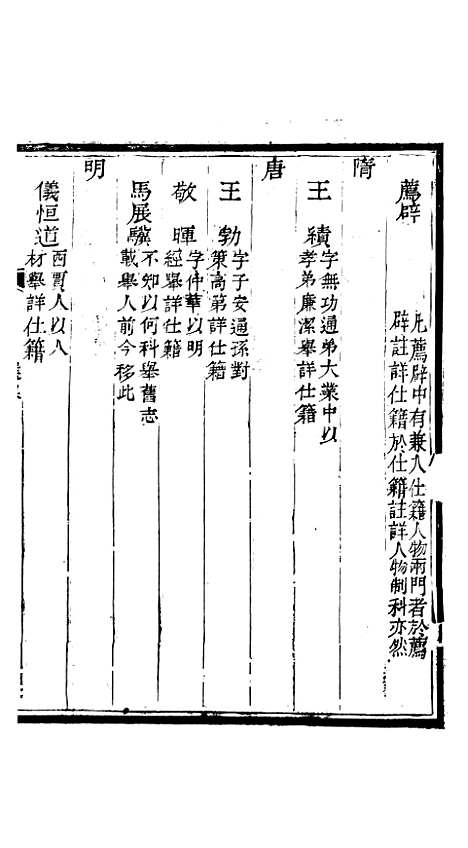 薦辟
凡薦辟中有兼入仕籍人物兩門者於薦
辟註詳仕籍於仕籍註詳人物制科亦然
隋
王績 字無功通弟大業中以
孝弟廉潔舉詳仕籍
唐
王勃 字子安通孫對
策高第詳仕籍
敬暉 字仲華以明
經舉詳仕籍
馬展驥 不知以何科舉舊志
載舉人前今移此
明
儀恒道 西賈人以人
材舉詳仕籍